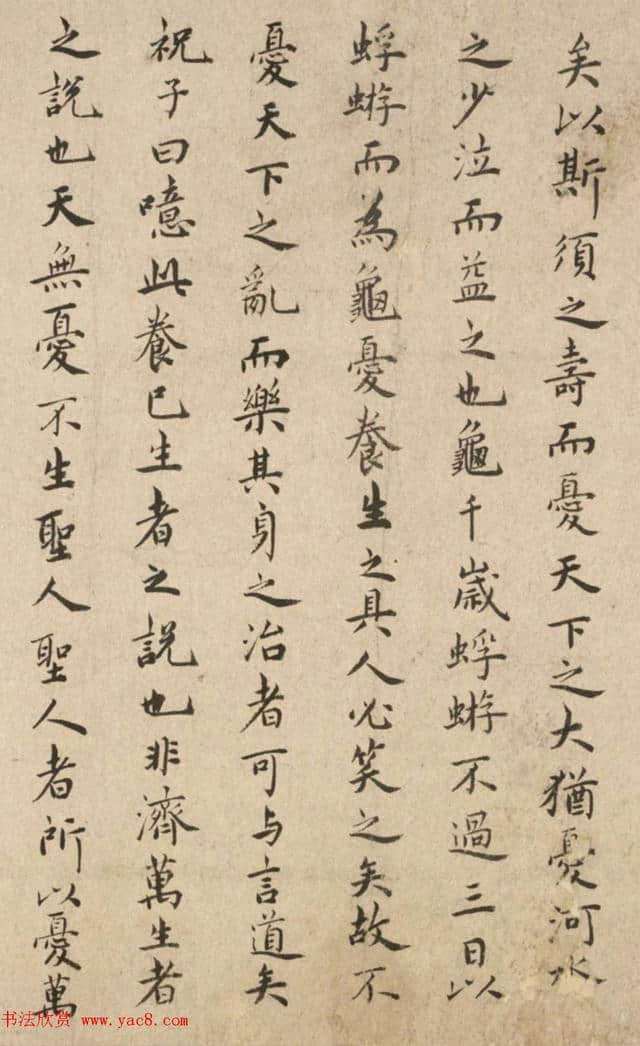 矣以斯須之壽而憂天下之大猶憂河水
之少泣而益之也龜千歲蜉蝣不過三日以
蜉蝣而為龜憂養生之具人必笑之矣故不
憂天下之亂而樂其身之治者可与言道矣
祝子曰噫此養己生者之說也非濟萬生者
之說也天無憂不生聖人聖人者所以憂萬
书法欣赏 www.yac8.com